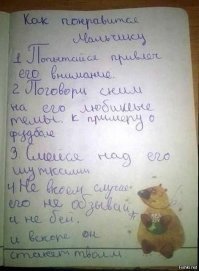 Как понравится
Мальчику
1 Попытайся привлеч
его внимание.
2 Поговори с ним
на его любимые
темы. к примеру о
футболе
3. Смейся над его
шутками
4 Не в коем случае
его не обзывай
и не бей.
и вскоре он
станет твоим